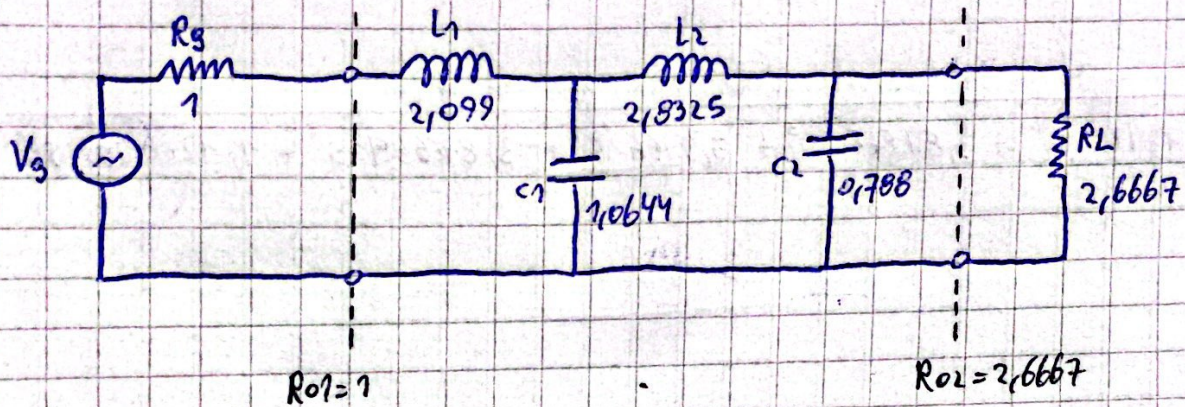 Rg
L1
L2
1
2,099
2,8325
Vg
C1
1,0644
C2
0,788
RL
2,6667
R01=1
R02=2,6667